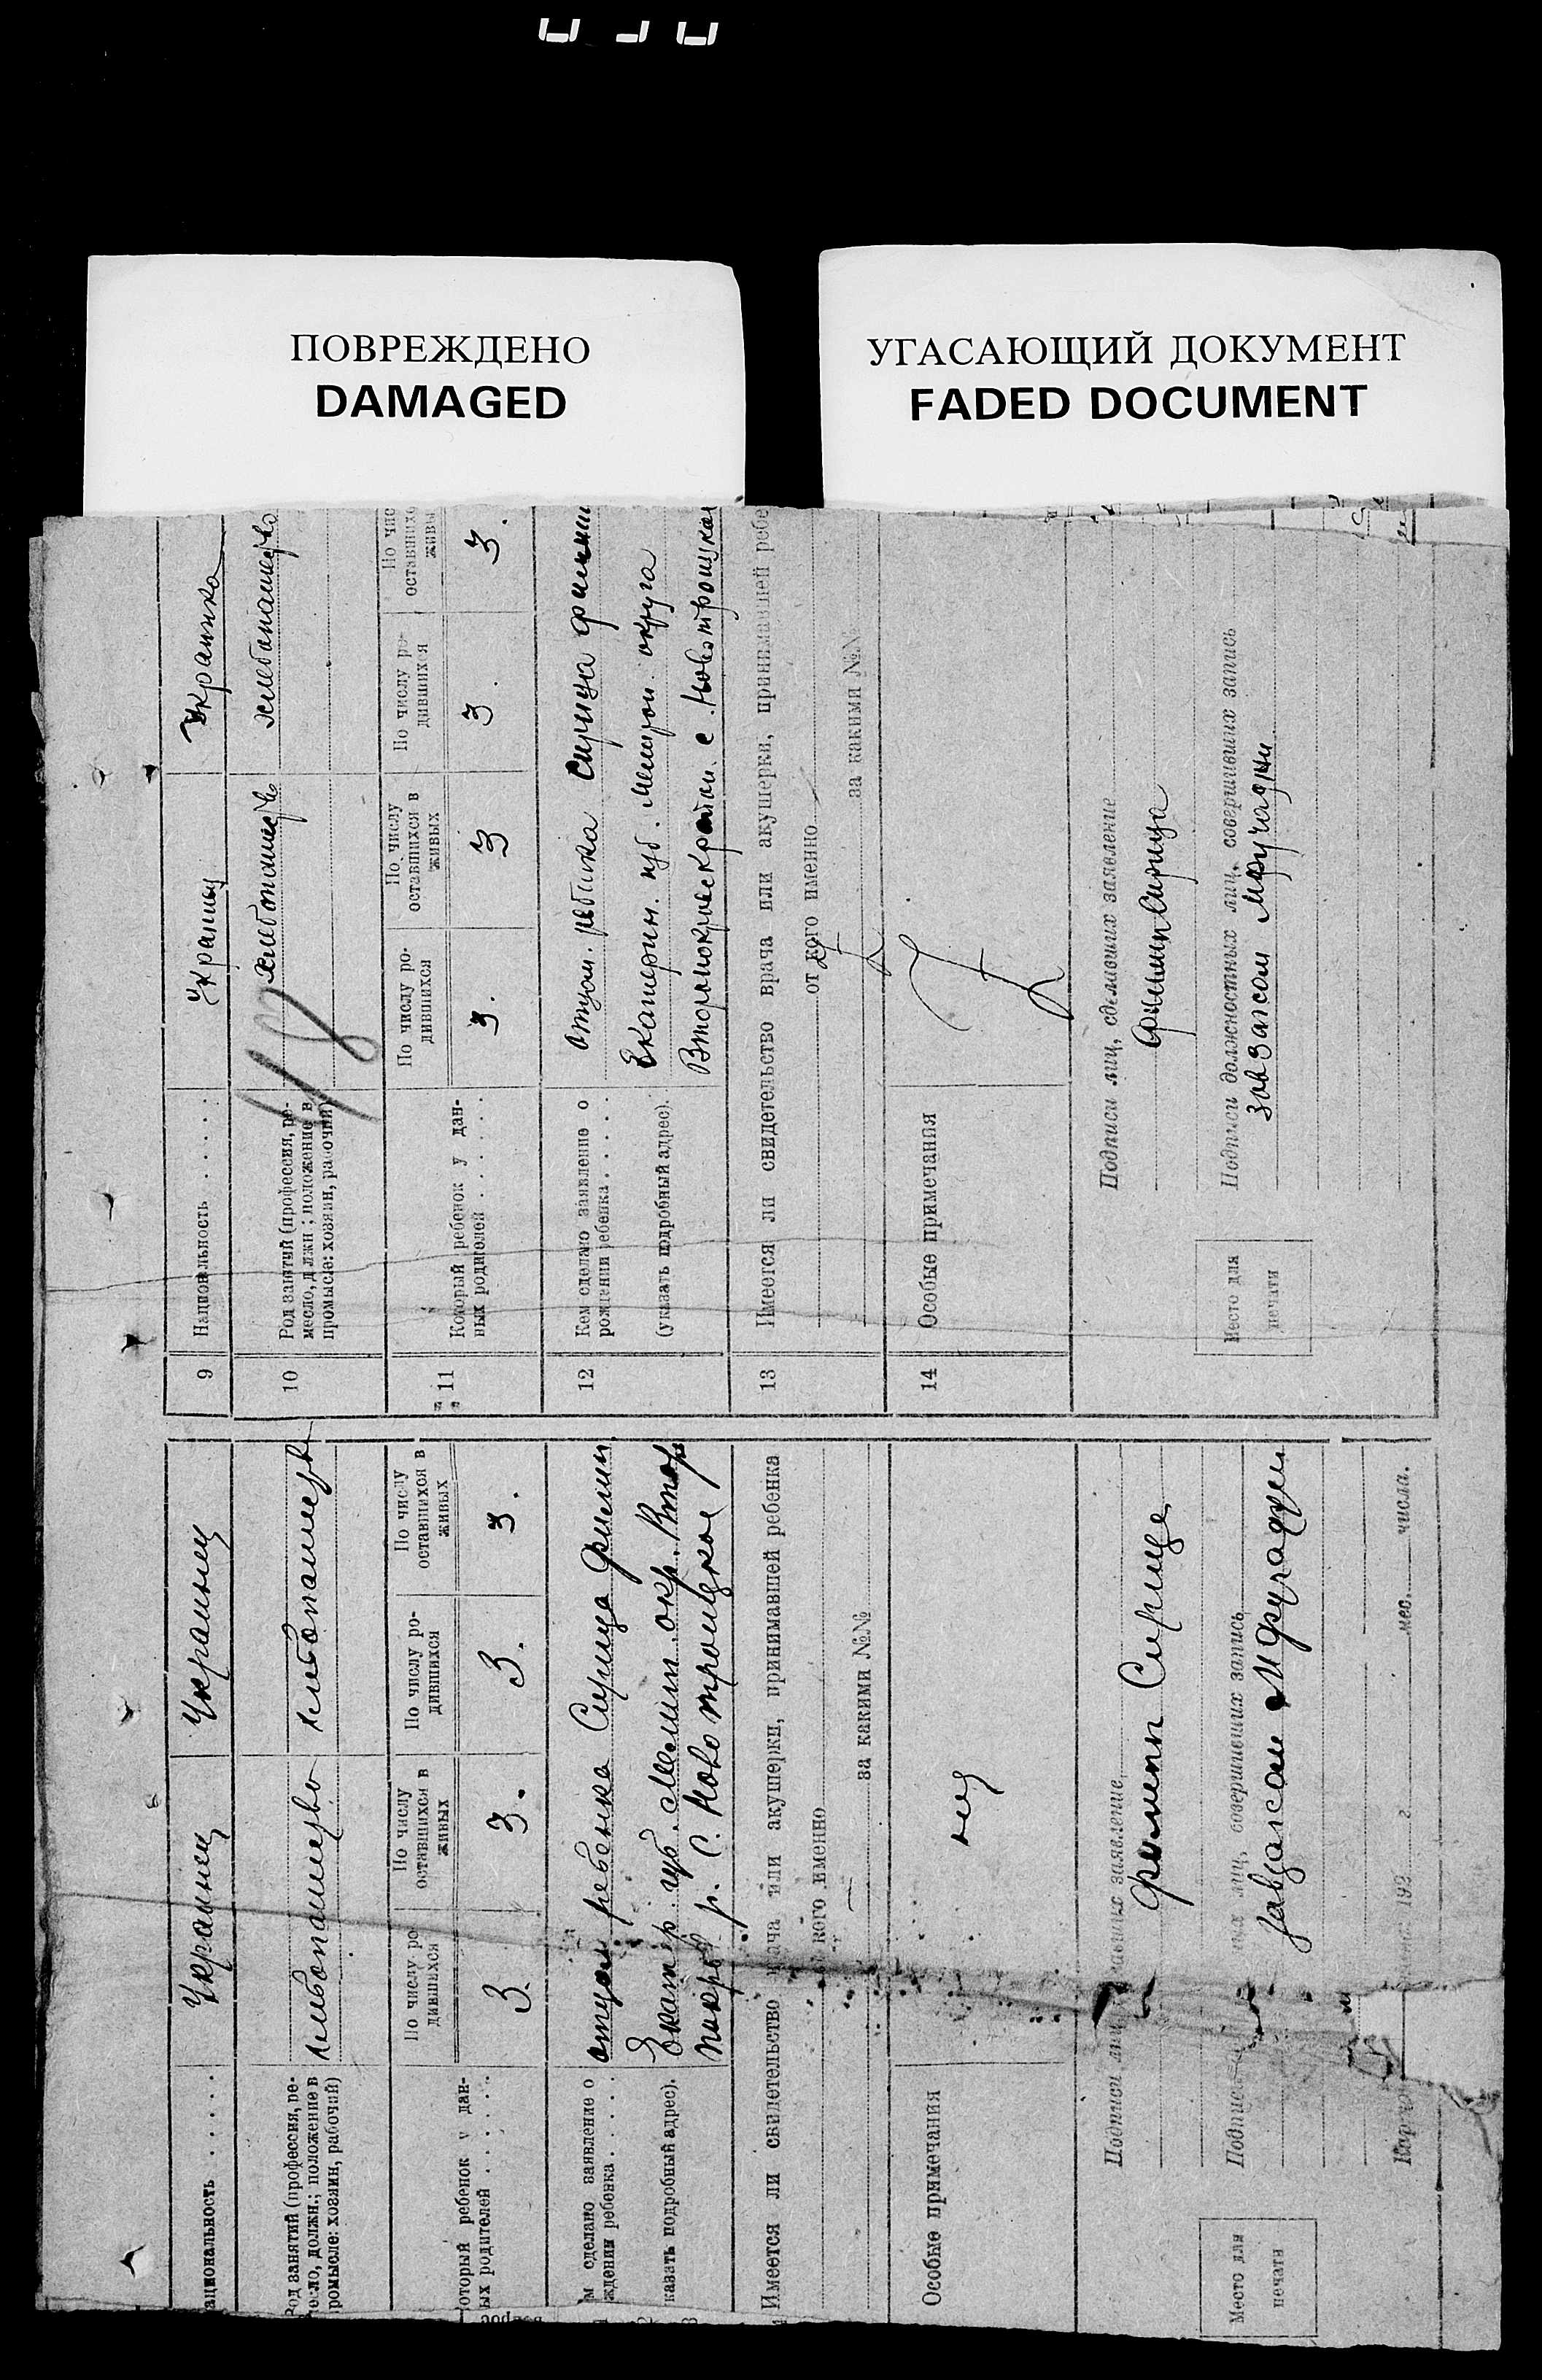 ПОВРЕЖДЕНО
DAMAGED
УГАСАЮЩИЙ ДОКУМЕНТ
FADED DOCUMENT
ациональность
Украинец
Украинец
Род занятий (профессия, ре-
месло, должн.; положение в
промысле: хозяин, рабочий)
хлебопашество
оторый ребенок у дан-
ых родителей
По числу ро-
дившихся
По числу
оставшихся в
живых
По числу ро-
дившихся
По числу
оставшихся в
живых
3.
3.
3.
3.
м сделано заявление о
ждении ребенка
казать подробный адрес).
отцом ребенка Сирица Филип
Екатер. губ. Мелит. окр. Втор
покров р. С. Ново троицкое
Имеется ли свидетельство врача или акушерки, принимавшей ребенка
кого именно
за какими №№
Особые примечания
нет
Подписи лиц, сделавших заявление
Филипп Сирица
завзагсом
Место для
печати
192 г. мес. числа.
9
Национальность
Украинец
Украинка
10
Род занятий (профессия, ре-
месло, должн; положение в
промысле: хозяин, рабочий)
18
хлебопашество
хлебопашество
11
Который ребенок у дан-
ных родителей
По числу ро-
дившихся
По числу
оставшихся в
живых
По числу ро-
дившихся
По чис
оставшихс
живы
3.
3
3.
3.
12
Кем сделано заявление о
рождении ребенка
(указать подробный адрес).
Отцом ребенка Сирица Филип
Екатерин. губ. Мелитоп. округа
с. Новотроицкая
13
Имеется ли свидетельство врача или акушерки, принимавшей ребе
от кого именно
за какими №№
14
Особые примечания
Подписи лиц, сделавших заявление
Филипп Сирица
Подписи должностных лиц, совершивших запись
Зав Загсом
Место для
печати